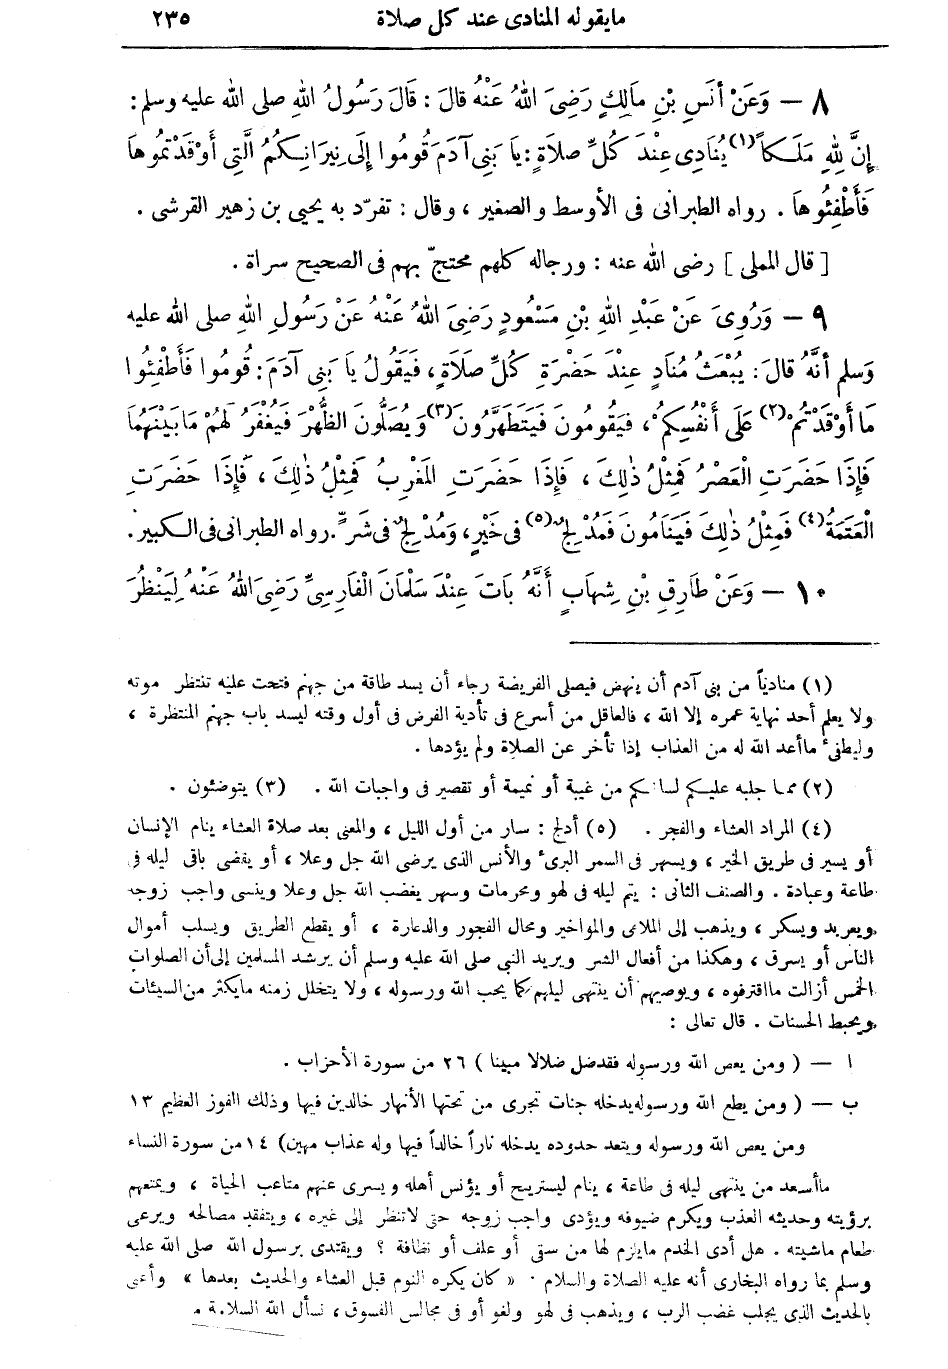 مايقوله المنادى عند كل صلاة ٢٣٥
٨ — وَعَنْ أَنَسِ بْنِ مَالِكٍ رَضِىَ اللهُ عَنْهُ قالَ : قَالَ رَسُولُ اللهِ صلى الله عليه وسلم :
إِنَّ لِلهِ مَلَكاً (١) يُنَادِى عِنْدَ كُلِّ صلاَةٍ : يا بَنِى آدَمَ قُومُوا إِلَى نِيرَانِكُمُ الَّتِى أَوْقَدْتُمُوهَا
فَأَطْفِئُوهَا . رواه الطبرانى فى الأوسط والصغير ، وقال : تفرّد به يحيى بن زهير القرشى .
[ قال المملى ] رضى الله عنه : ورجاله كلهم محتجّ بهم فى الصحيح سراة .
٩ — وَرُوِىَ عَنْ عَبْدِ اللهِ بْنِ مَسْعُودٍ رَضِىَ اللهُ عَنْهُ عَنْ رَسُولِ اللهِ صلى الله عليه
وَسلم أَنَّهُ قالَ : يُبْعَثُ مُنَادٍ عِنْدَ حَضْرَةِ كُلِّ صَلاَةٍ ، فَيَقُولُ يَا بَنِى آدَمَ : قُومُوا فَأَطْفِئُوا
مَا أَوْقَدْتُمْ (٢) عَلَى أَنْفُسِكُمْ ، فَيَقُومُونَ فَيَتَطَهَّرُونَ (٣) وَيُصَلُّونَ الظُّهْرَ فَيُغْفَرُ لَهُمْ مَا بَيْنَهُمَا
فَإِذَا حَضَرَتِ الْعَصْرُ فَمِثْلُ ذٰلِكَ ، فَإِذَا حَضَرَتِ المَغْرِبُ فَمِثْلُ ذٰلِكَ ، فَإِذَا حَضَرَتِ
الْعَتَمَةُ (٤) فَمِثْلُ ذٰلِكَ فَيَنَامُونَ فَمُدْلِجٌ (٥) فى خَيْرٍ ، وَمُدْلِجٌ فى شَرٍّ . رواه الطبرانى فى الكبير .
١٠ — وَعَنْ طَارِقِ بْنِ شِهَابٍ أَنَّهُ بَاتَ عِنْدَ سَلْمَانَ الْفَارِسِىِّ رَضِىَ اللهُ عَنْهُ لِيَنْظُرَ
(١) منادياً من بنى آدم أن ينهض فيصلى الفريضة رجاء أن يسد طاقة من جهنم فتحت عليه تنتظر موته
ولا يعلم أحد نهاية عمره إلا الله ، فالعاقل من أسرع فى تأدية الفرض فى أول وقته ليسد باب جهنم المنتظرة ،
وليطفئ ماأعد الله له من العذاب إذا تأخر عن الصلاة ولم يؤدها .
(٢) مما جلبه عليكم لسانكم من غيبة أو نميمة أو تقصير فى واجبات الله . (٣) يتوضئون .
(٤) المراد العشاء والفجر . (٥) أدلج : سار من أول الليل ، والمعنى بعد صلاة العشاء ينام الإنسان
أو يسير فى طريق الخير ، ويسهر فى السمر البرىء والأنس الذى يرضى الله جل وعلا ، أو يقضى باقى ليله فى
طاعة وعبادة . والصنف الثانى : يتم ليله فى لهو ومحرمات وسهر يغضب الله جل وعلا وينسى واجب زوجه
ويعربد ويسكر ، ويذهب إلى الملاهى والمواخير ومحال الفجور والدعارة ، أو يقطع الطريق ويسلب أموال
الناس أو يسرق ، وهكذا من أفعال الشر ويريد النبى صلى الله عليه وسلم أن يرشد المسلمين إلى أن الصلوات
الخمس أزالت مااقترفوه ، ويوصيهم أن ينتهى ليلهم كما يحب الله ورسوله ، ولا يتخلل زمنه مايكثر من السيئات
ويحبط الحسنات . قال تعالى :
ا — ( ومن يعص الله ورسوله فقد ضل ضلالا مبينا ) ٢٦ من سورة الأحزاب .
ب — ( ومن يطع الله ورسوله يدخله جنات تجرى من تحتها الأنهار خالدين فيها وذلك الفوز العظيم ١٣
ومن يعص الله ورسوله ويتعد حدوده يدخله ناراً خالداً فيها وله عذاب مهين) ١٤ من سورة النساء
ماأسعد من ينتهى ليله فى طاعة ، ينام ليستريح أو يؤنس أهله ويسرى عنهم متاعب الحياة ، ويمتعهم
برؤيته وحديثه العذب ويكرم ضيوفه ويؤدى واجب زوجه حتى لاتنظر إلى غيره ، ويتفقد مصالحه ويرعى
طعام ماشيته . هل أدى الخدم مايلزم لها من سقى أو علف أو نظافة ؟ ويقتدى برسول الله صلى الله عليه
وسلم بما رواه البخارى أنه عليه الصلاة والسلام . « كان يكره النوم قبل العشاء والحديث بعدها » وأعنى
بالحديث الذى يجلب غضب الرب ، ويذهب فى لهو ولغو أو فى مجالس الفسوق ، نسأل الله السلامة م